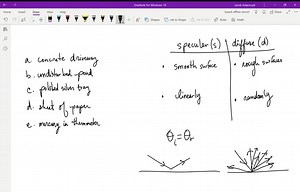 OneNote for Windows 10
a. concrete driveway
b. undisturbed pond
c. polished silver tray
d. sheet of paper
e. mercury in thermometer
specular (s)
diffuse (d)
• smooth surface
• rough surfaces
• linearly
• randomly
θi = θr